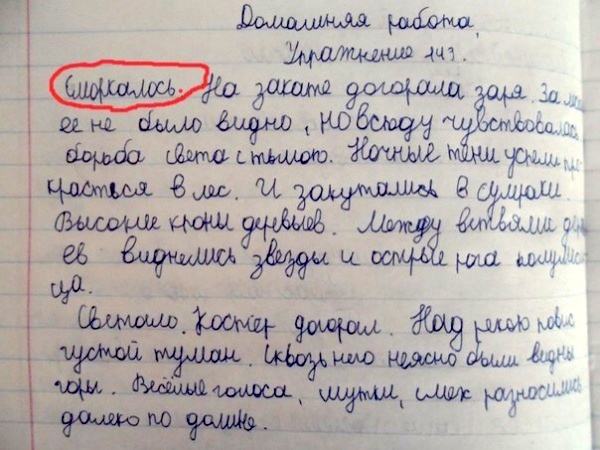 Домашняя работа.
Упражнение 143.
Сморкалось. На закате догорала заря. За
ее не было видно, но всюду чувствовалась
борьба света с тьмою. Ночные тени успели про-
красться в лес. И закутались в сумраки.
Высокие кроны деревьев. Между ветвями дерев-
ев виднелись звезды и острые рога полумеся-
ца.
Светало. Костер догорал. Над рекою повис
густой туман. Сквозь него неясно были видны
горы. Весёлые голоса, шутки, смех разносились
далеко по долине.